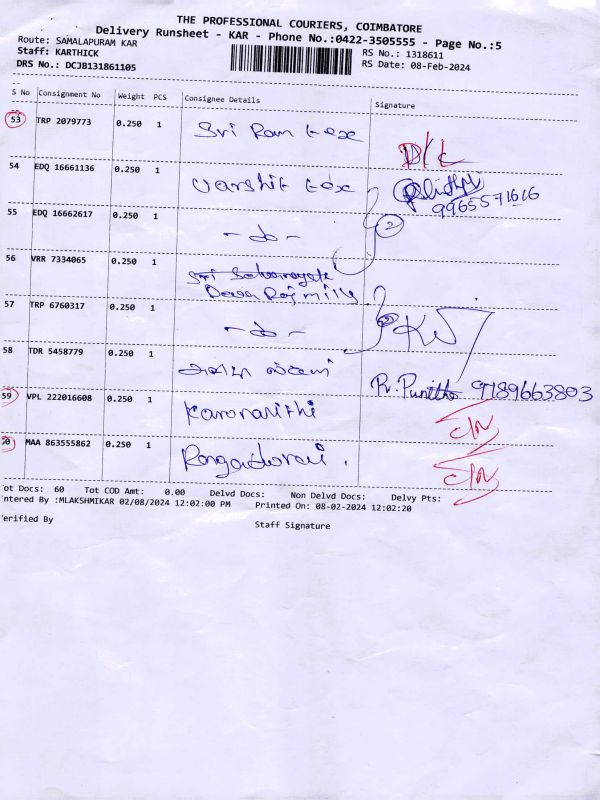 THE PROFESSIONAL COURIERS, COIMBATORE
Delivery Runsheet - KAR - Phone No.:0422-3505555 - Page No.:5
Route: SAMALAPURAM KAR RS No.: 1318611
Staff: KARTHICK RS Date: 08-Feb-2024
DRS No.: DCJB131861105
S No Consignment No Weight PCS Consignee Details Signature
53 TRP 2079773 0.250 1 Sri Ram tex D/L
54 EDQ 16661136 0.250 1 Varshit tex
9965571616
55 EDQ 16662617 0.250 1 - do - 2
56 VRR 7334065 0.250 1 Sri
57 TRP 6760317 0.250 1 - do -
58 TDR 5458779 0.250 1 P. Punitha 9789663803
59 VPL 222016608 0.250 1 Karunanithi C/N
MAA 863555862 0.250 1 Rangadurai . C/N
ot Docs: 60 Tot COD Amt: 0.00 Delvd Docs: Non Delvd Docs: Delvy Pts:
ntered By :MLAKSHMIKAR 02/08/2024 12:02:00 PM Printed On: 08-02-2024 12:02:20
erified By Staff Signature